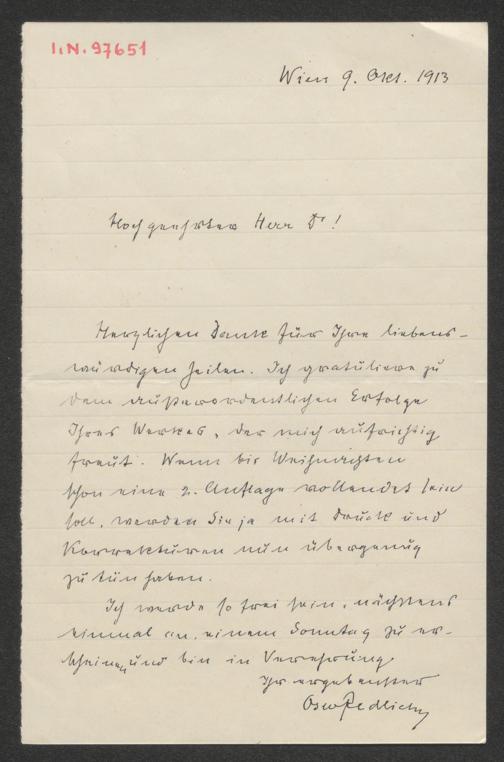 I.N. 97651
Wien 9. Okt. 1913
Hochgeehrter Herr Dr!
Herzlichen Dank für Ihre liebens-
würdigen Zeilen. Ich gratuliere zu
dem außerordentlichen Erfolge
Ihres Werkes, der mich aufrichtig
freut. Wenn bis Weihnachten
schon eine 2. Auflage vollendet sein
soll, werden Sie ja mit Druck und
Korrekturen nun übergenug
zu tun haben.
Ich werde so frei sein, nächstens
einmal an einem Sonntag zu er-
scheinen, und bin in Verehrung
Ihr ergebenster
Osw Redlich